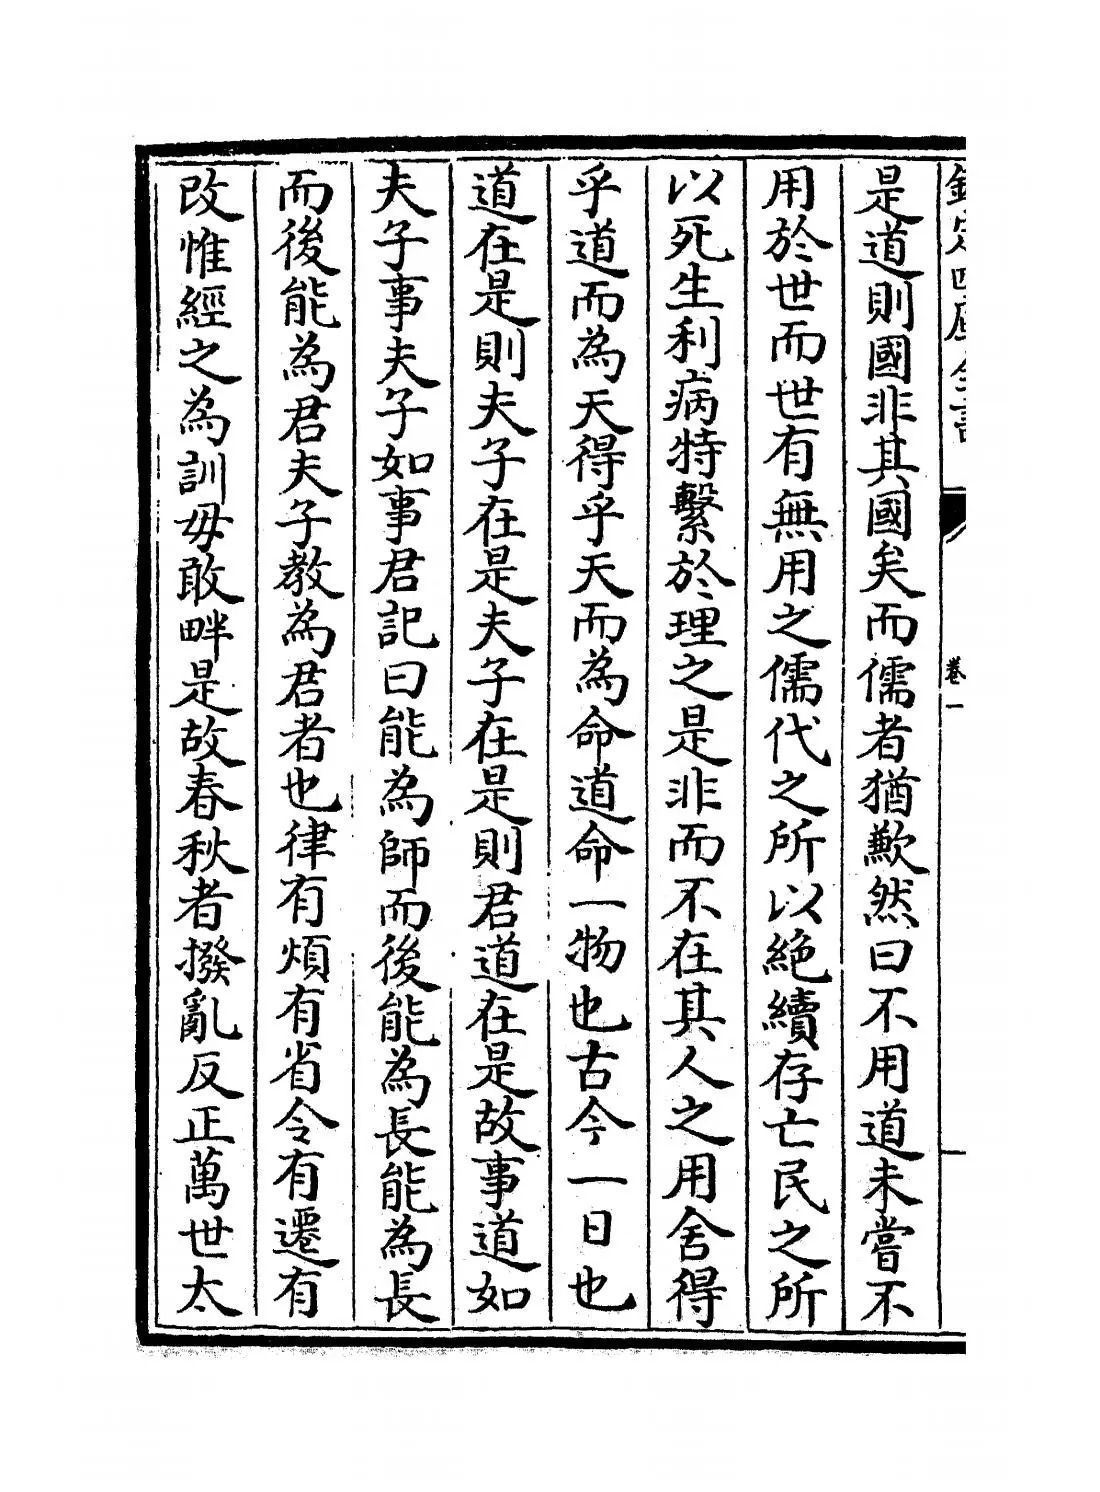 欽定四庫全書
卷一
是道則國非其國矣而儒者猶歉然曰不用道未嘗不
用於世而世有無用之儒代之所以絶續存亡民之所
以死生利病特繫於理之是非而不在其人之用舍得
乎道而為天得乎天而為命道命一物也古今一日也
道在是則夫子在是夫子在是則君道在是故事道如
夫子事夫子如事君記曰能為師而後能為長能為長
而後能為君夫子教為君者也律有煩有省令有遷有
改惟經之為訓毋敢畔是故春秋者撥亂反正萬世太